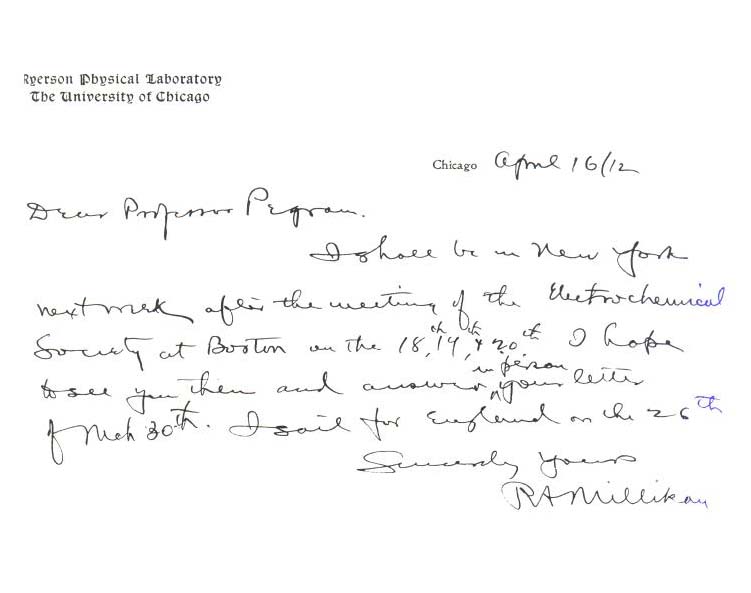 Ryerson Physical Laboratory
The University of Chicago
Chicago April 16/12
Dear Professor Pegram.
I shall be in New York
next week after the meeting of the Electrochemical
Society at Boston on the 18th, 19th, & 20th I hope
in person
to see you then and answer ^ your letter
of Mch 30th. I sail for England on the 26th
Sincerely yours
RA Millikan